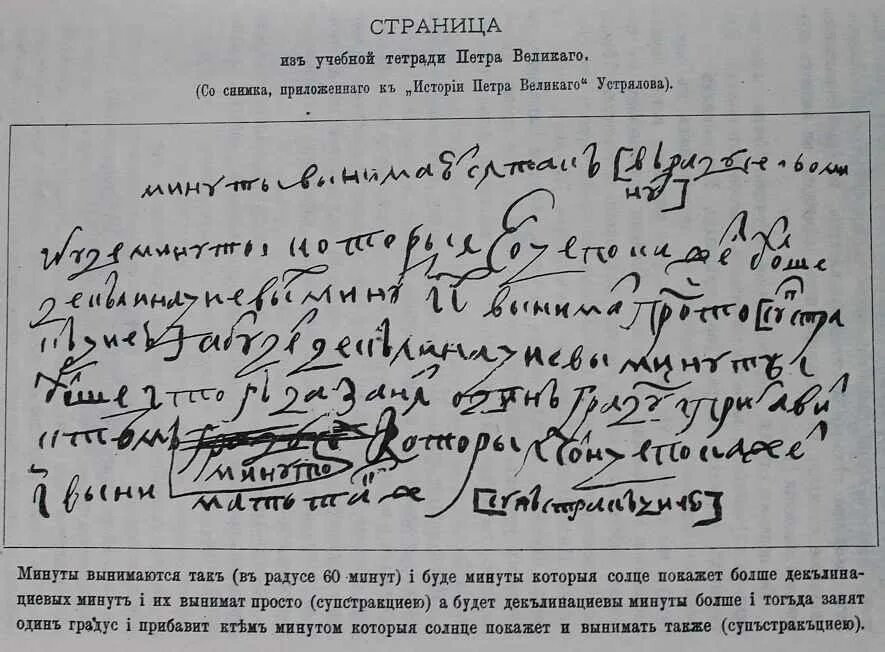 СТРАНИЦА
изъ учебной тетради Петра Великаго.
(Со снимка, приложеннаго къ „Исторіи Петра Великаго“ Устрялова).
минуты вынимаютса такъ [въ радусе
буде минуты которыя покаже болше
декълинациевы мину i и вынима просто
а буде декълинациевы минуты i
болше занят одинъ граду i прибави
ктемъ минутом которы покаже
i вынимать также
Минуты вынимаются такъ (въ радусе 60 минут) і буде минуты которыя солце покажет болше декълина-
циевых минутъ і их вынимат просто (супстракциею) а будет декълинациевы минуты болше і тогъда занят
одинъ градус і прибавит ктѣмъ минутом которыя солнце покажет и вынимать также (супъстракъциею).